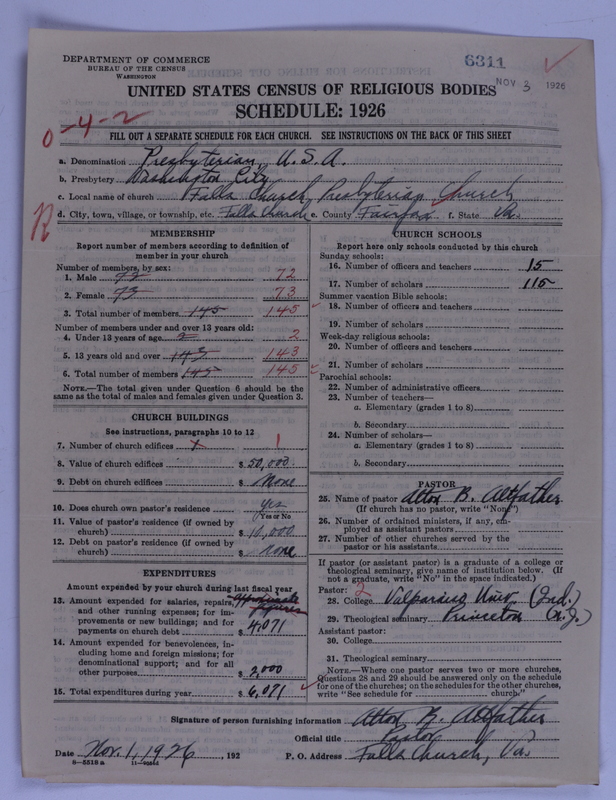 DEPARTMENT OF COMMERCE
BUREAU OF THE CENSUS
WASHINGTON
6311
NOV 3 1926
UNITED STATES CENSUS OF RELIGIOUS BODIES
SCHEDULE: 1926
0-4-2
FILL OUT A SEPARATE SCHEDULE FOR EACH CHURCH. SEE INSTRUCTIONS ON THE BACK OF THIS SHEET
a. Denomination Presbyterian, U.S.A.
b. Presbytery Washington City
c. Local name of church Falls Church Presbyterian Church
d. City, town, village, or township, etc. Falls Church e. County Fairfax f. State Va.
MEMBERSHIP
Report number of members according to definition of
member in your church
Number of members, by sex:
1. Male 72 72
2. Female 73 73
3. Total number of members 145 145
Number of members under and over 13 years old:
4. Under 13 years of age 2 2
5. 13 years old and over 143 143
6. Total number of members 145 145
NOTE.—The total given under Question 6 should be the
same as the total of males and females given under Question 3.
CHURCH BUILDINGS
See instructions, paragraphs 10 to 12
7. Number of church edifices 1 1
8. Value of church edifices $ 50,000
9. Debt on church edifices $ None
10. Does church own pastor's residence yes
(Yes or No)
11. Value of pastor's residence (if owned by
church) $ 10,000
12. Debt on pastor's residence (if owned by
church) $ none
EXPENDITURES
Amount expended by your church during last fiscal year
13. Amount expended for salaries, repairs,
and other running expenses; for im-
provements or new buildings; and for
payments on church debt $ 4,071
14. Amount expended for benevolences, in-
cluding home and foreign missions; for
denominational support; and for all
other purposes $ 2,000
15. Total expenditures during year $ 6,071
CHURCH SCHOOLS
Report here only schools conducted by this church
Sunday schools:
16. Number of officers and teachers 15
17. Number of scholars 115
Summer vacation Bible schools:
18. Number of officers and teachers
19. Number of scholars
Week-day religious schools:
20. Number of officers and teachers
21. Number of scholars
Parochial schools:
22. Number of administrative officers
23. Number of teachers—
a. Elementary (grades 1 to 8)
b. Secondary
24. Number of scholars—
a. Elementary (grades 1 to 8)
b. Secondary
PASTOR
25. Name of pastor Alton B. Altfather
(If church has no pastor, write "None")
26. Number of ordained ministers, if any, em-
ployed as assistant pastors
27. Number of other churches served by the
pastor or his assistants
If pastor (or assistant pastor) is a graduate of a college or
theological seminary, give name of institution below. (If
not a graduate, write "No" in the space indicated.)
Pastor: 2
28. College Valparaiso Univ. (Ind.)
29. Theological seminary Princeton (N.J.)
Assistant pastor:
30. College
31. Theological seminary
NOTE.—Where one pastor serves two or more churches,
Questions 28 and 29 should be answered only on the schedule
for one of the churches; on the schedules for the other churches,
write "See schedule for church."
Signature of person furnishing information Alton B. Altfather
Official title Pastor
Date Nov. 1, 1926, 192 P. O. Address Falls Church, Va.
8—5518 a